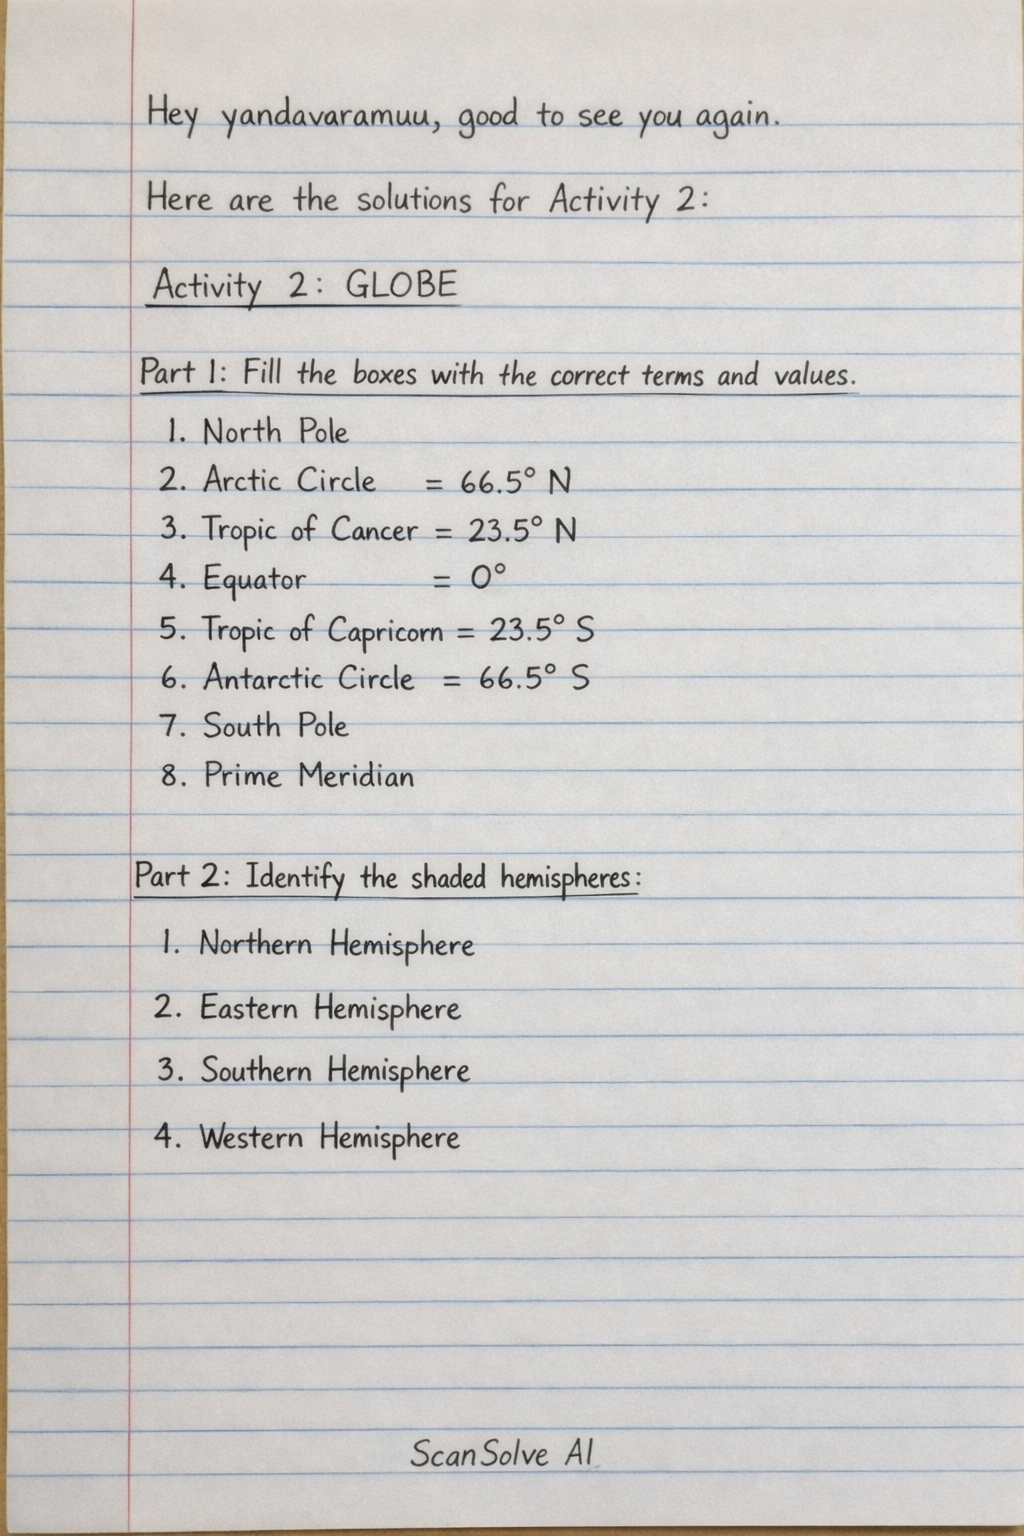 Hey yandavaramuu, good to see you again.
Here are the solutions for Activity 2:
Activity 2: GLOBE
Part 1: Fill the boxes with the correct terms and values.
1. North Pole
2. Arctic Circle = 66.5° N
3. Tropic of Cancer = 23.5° N
4. Equator = 0°
5. Tropic of Capricorn = 23.5° S
6. Antarctic Circle = 66.5° S
7. South Pole
8. Prime Meridian
Part 2: Identify the shaded hemispheres:
1. Northern Hemisphere
2. Eastern Hemisphere
3. Southern Hemisphere
4. Western Hemisphere
ScanSolve AI